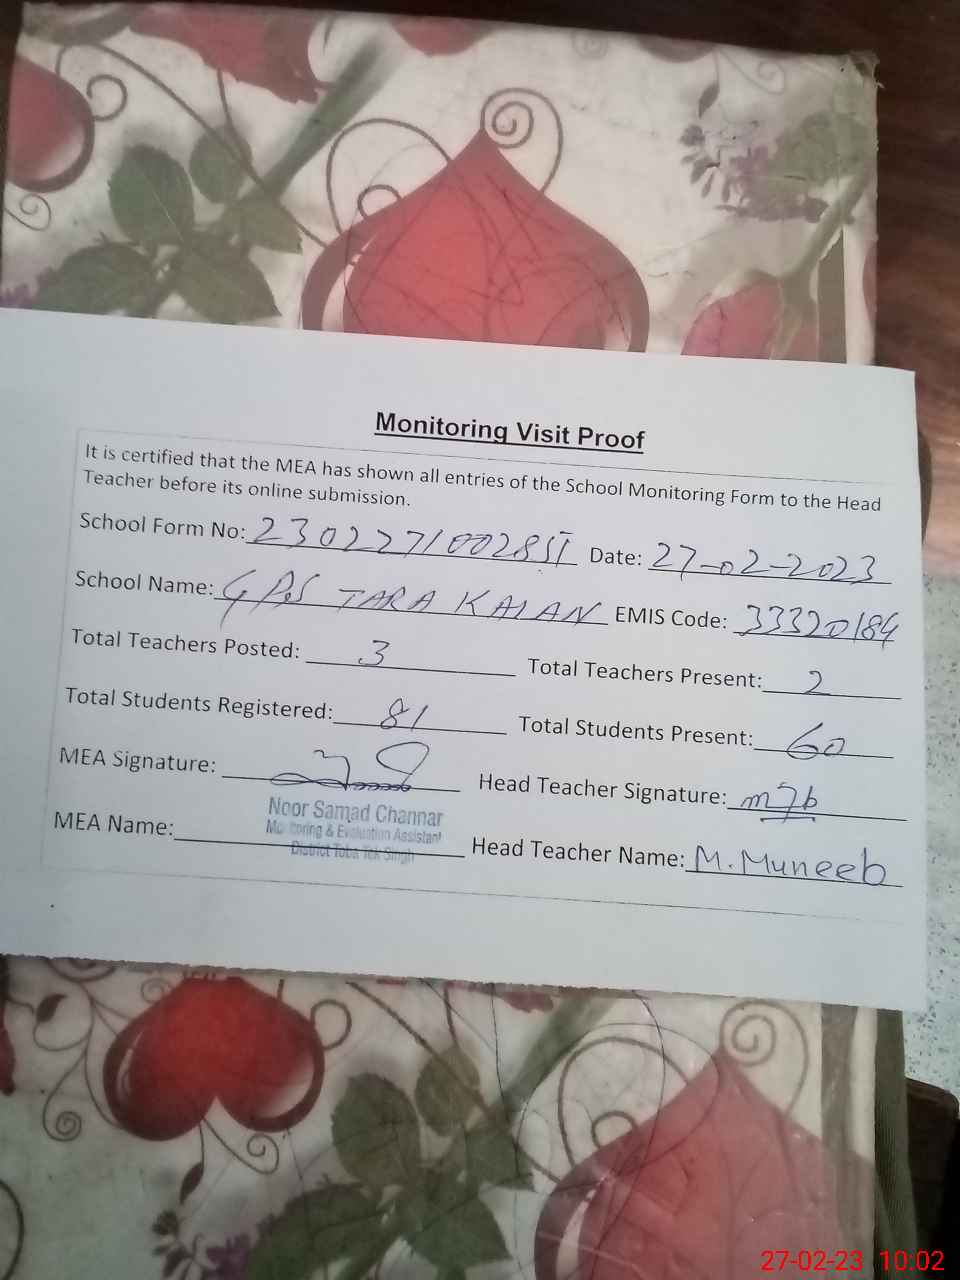 Monitoring Visit Proof
It is certified that the MEA has shown all entries of the School Monitoring Form to the Head
Teacher before its online submission.
School Form No: Date: 27-02-2023
School Name: GPS TARA KALAN EMIS Code: 33320184
Total Teachers Posted: 3 Total Teachers Present: 2
Total Students Registered: 81 Total Students Present: 60
MEA Signature: Head Teacher Signature:
Noor Samad Channar
Monitoring & Evaluation Assistant
District Toba Tek Singh
MEA Name: Head Teacher Name: M. Muneeb
27-02-23 10:02